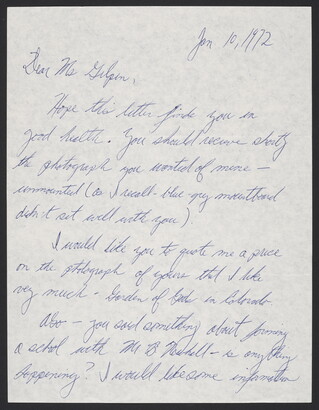 Jan 10, 1972
Dear Ms Gilpin,
Hope this letter finds you in
good health. You should receive shortly
the photograph you wanted of mine —
unmounted (as I recall blue-grey mountboard
didn't set well with you).
I would like you to quote me a price
on the photograph of yours that I like
very much - Garden of Gods in Colorado.
Also — you said something about forming
a school with Mr B Newhall - is anything
happening? I would like some information